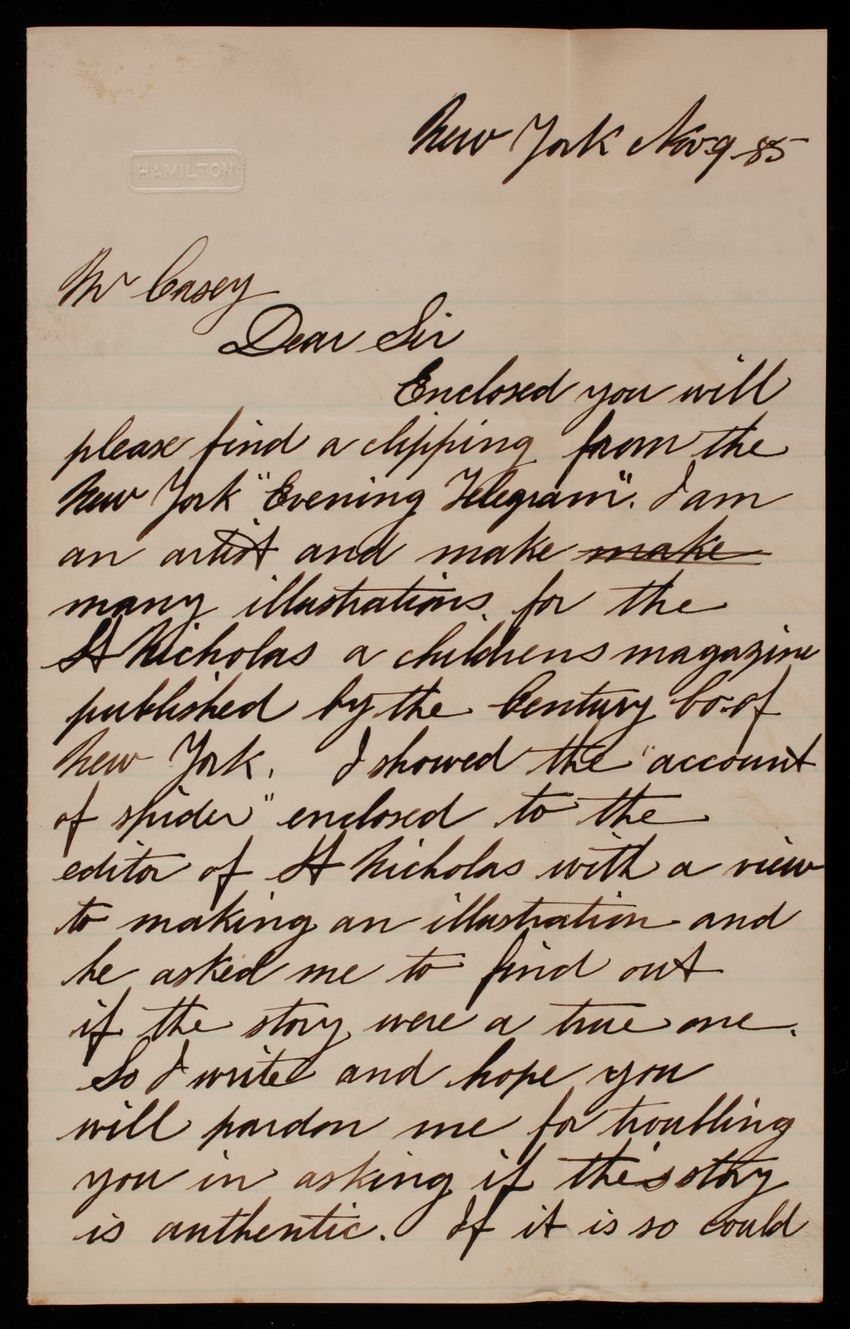 New York Nov 9 85
HAMILTON
Mr Casey
Dear Sir
Enclosed you will
please find a clipping from the
New York "Evening Telegram". I am
an artist and make make
many illustrations for the
St Nicholas a childrens magazine
published by the Century Co. of
New York. I showed the "account
of spider" enclosed to the
editor of St Nicholas with a view
to making an illustration and
he asked me to find out
if the story were a true one.
So I write and hope you
will pardon me for troubling
you in asking if this story
is authentic. If it is so could